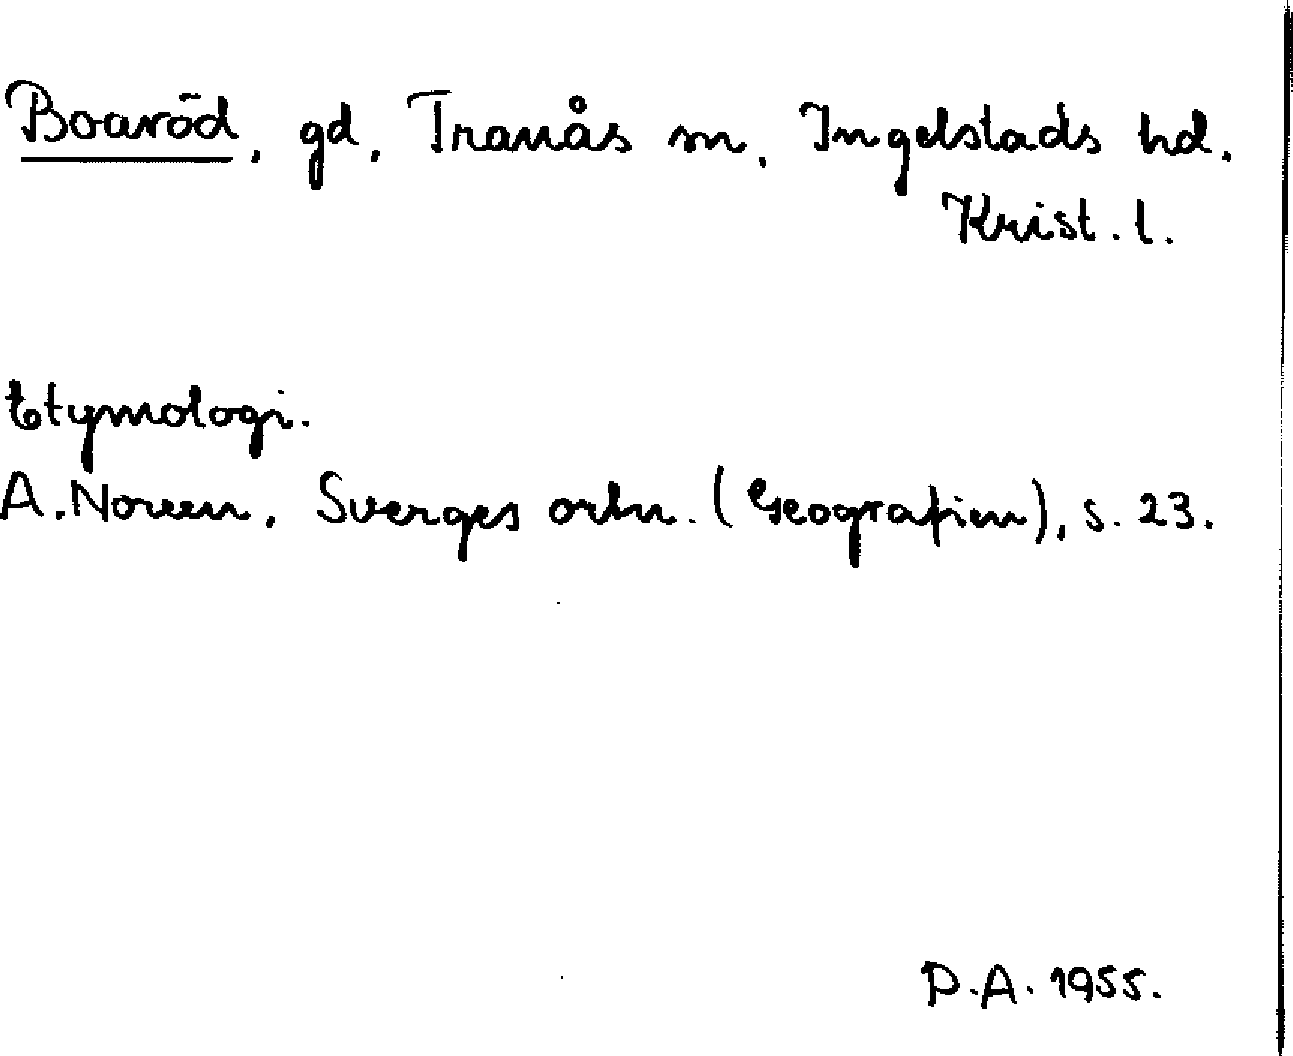 Boaröd, gd, Tranås sn, Ingelstads hd.
Krist. l.
Etymologi.
A. Noreen, Sverges ortn. (Geografien), s. 23.
P.A. 1955.